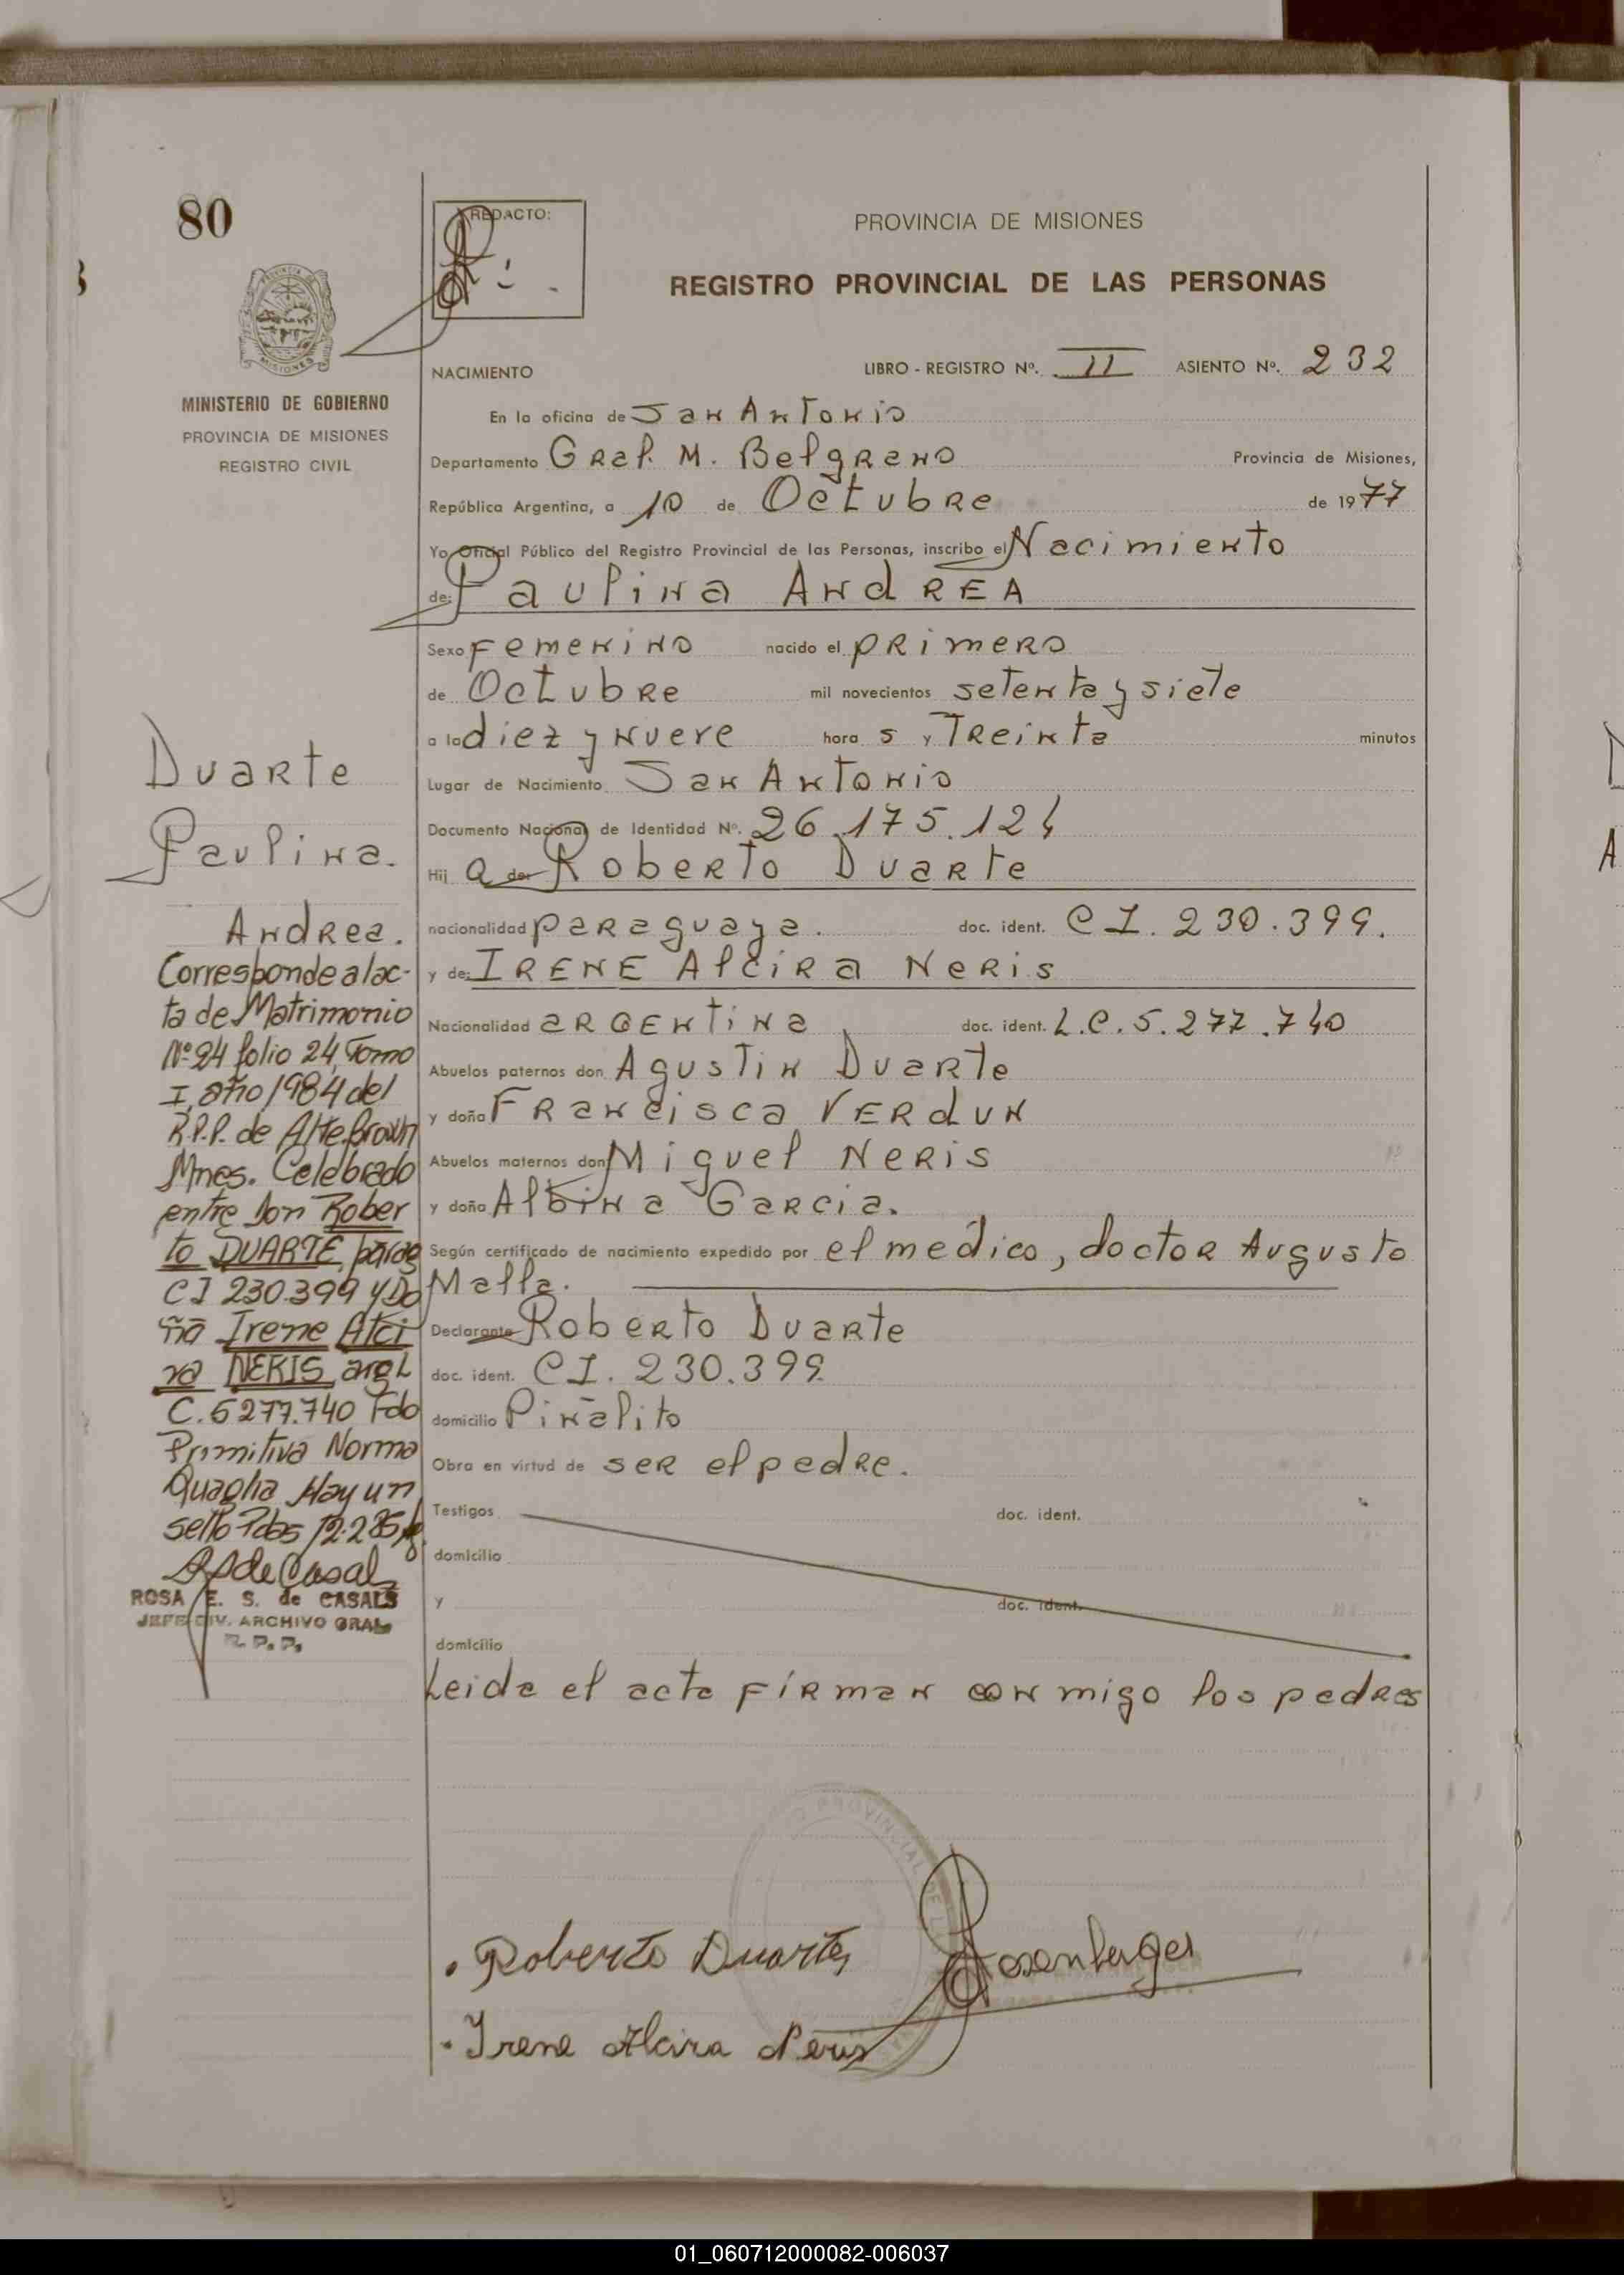 80
REDACTO:
PROVINCIA DE MISIONES
REGISTRO PROVINCIAL DE LAS PERSONAS
MINISTERIO DE GOBIERNO
PROVINCIA DE MISIONES
REGISTRO CIVIL
NACIMIENTO LIBRO - REGISTRO Nº. II ASIENTO Nº. 232
En la oficina de San Antonio
Departamento Gral. M. Belgrano Provincia de Misiones,
República Argentina, a 10 de Octubre de 1977
Yo Oficial Público del Registro Provincial de las Personas, inscribo el Nacimiento
de: Paulina AndREA
Sexo Femenino nacido el primero
de Octubre mil novecientos setenta y siete
a la diez y nueve hora s y Treinta minutos
Lugar de Nacimiento San Antonio
Documento Nacional de Identidad Nº. 26.175.124
Hij a de: Roberto Duarte
nacionalidad paraguaya. doc. ident. CI. 230.399.
y de: IRENE Alcira Neris
Nacionalidad argentina doc. ident. L.C. 5.277.740
Abuelos paternos don Agustin Duarte
y doña Francisca Verdun
Abuelos maternos don Miguel Neris
y doña Albina Garcia.
Según certificado de nacimiento expedido por el medico, doctor Augusto
Malla.
Declarante Roberto Duarte
doc. ident. CI. 230.399.
domicilio Piñalito
Obra en virtud de ser el padre.
Testigos doc. ident.
domicilio
y doc. ident.
domicilio
Leida el acta firman conmigo los padres
Duarte
Paulina.
Andrea.
Corresponde al ac-
ta de Matrimonio
Nº 24 folio 24, Tomo
I, año 1984 del
R.P.P. de Alte. Brown
Mnes. Celebrado
entre Don Rober
to DUARTE, parag
CI 230.399 y Do
ña Irene Alci
ra NERIS arg L
C. 5277.740 Fdo
Primitiva Norma
Quaglia Hay un
sello Pdas 12.2.85
ROSA E. S. de CASALS
JEFE DIV. ARCHIVO GRAL
R. P. P.
Roberto Duarte
Rosenberger
Irene Alcira Neris
01_060712000082-006037